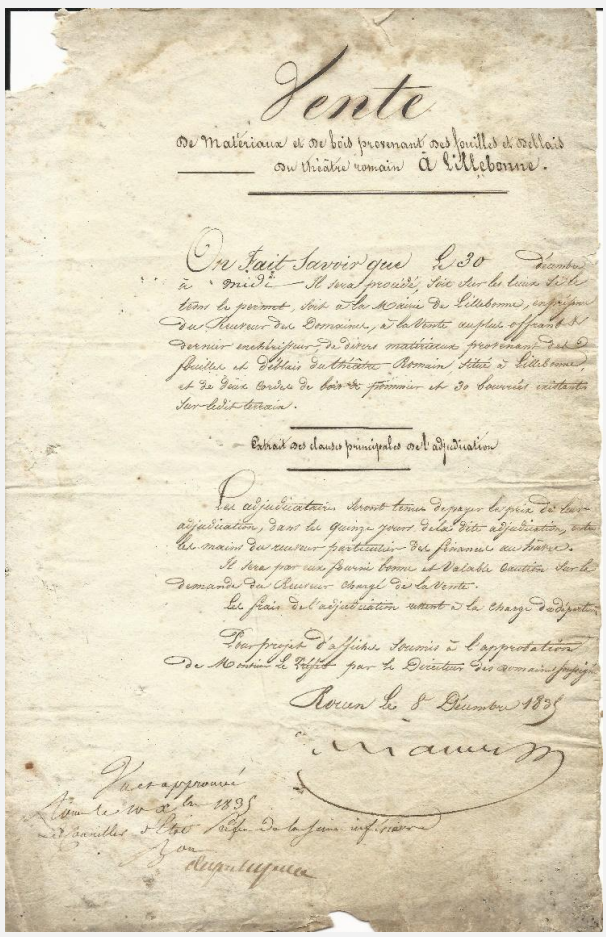 Vente
De Matériaux et de bois provenant des fouilles et deblais
du théâtre romain à Lillebonne.
On Fait Savoir que le 30 décembre
à midi Il sera procédé, soit sur les lieux si le
tems le permet, soit à la Mairie de Lillebonne, en présence
du Receveur des Domaines, à la Vente au plus offrant &
dernier enchérisseur, de divers matériaux provenant des
fouilles et déblais du théâtre Romain situé à Lillebonne,
et de deux cordes de bois de pommier et 30 bourrées existants
sur ledit terrain.
Extrait des clauses principales de l'adjudication
Les adjudicataires seront tenus de payer le prix de leur
adjudication, dans les quinze jours de la dite adjudication, entre
les mains du receveur particulier des finances au Havre.
Il sera par eux fourni bonne et valable Caution sur la
demande du Receveur chargé de la Vente.
Les frais de l'adjudication restent à la charge du département
Pour projet d'affiche soumis à l'approbation
de Monsieur le Préfet par le Directeur des domaines soussigné
Rouen le 8 Décembre 1835
Vu et approuvé
Rouen le 10 Xbre 1835
Préfet de la Seine inférieure